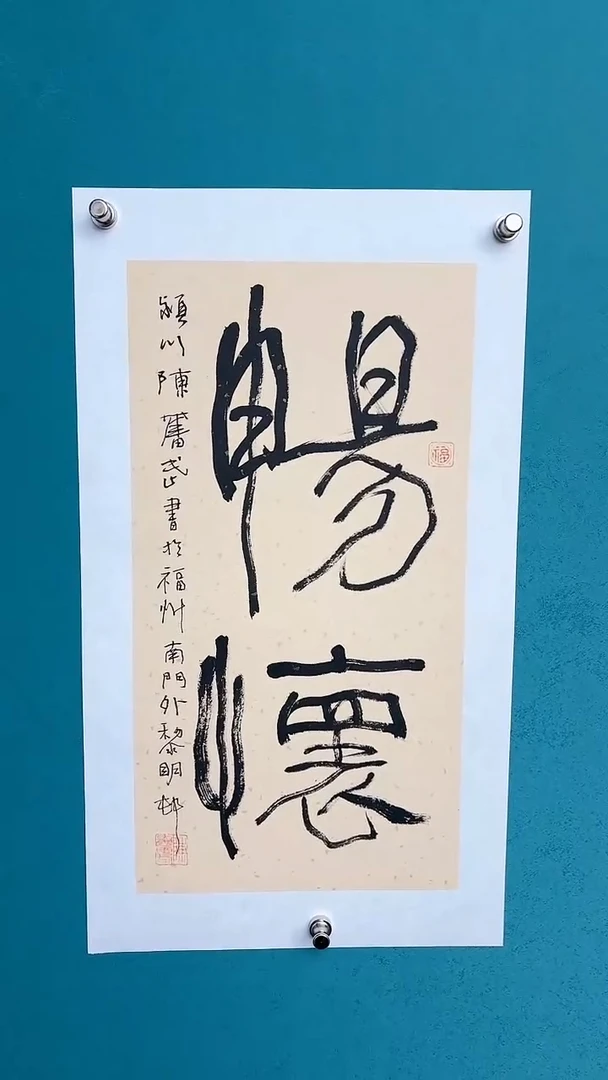 福
暢懷
潁川陳奮武書於福州南門外黎明村